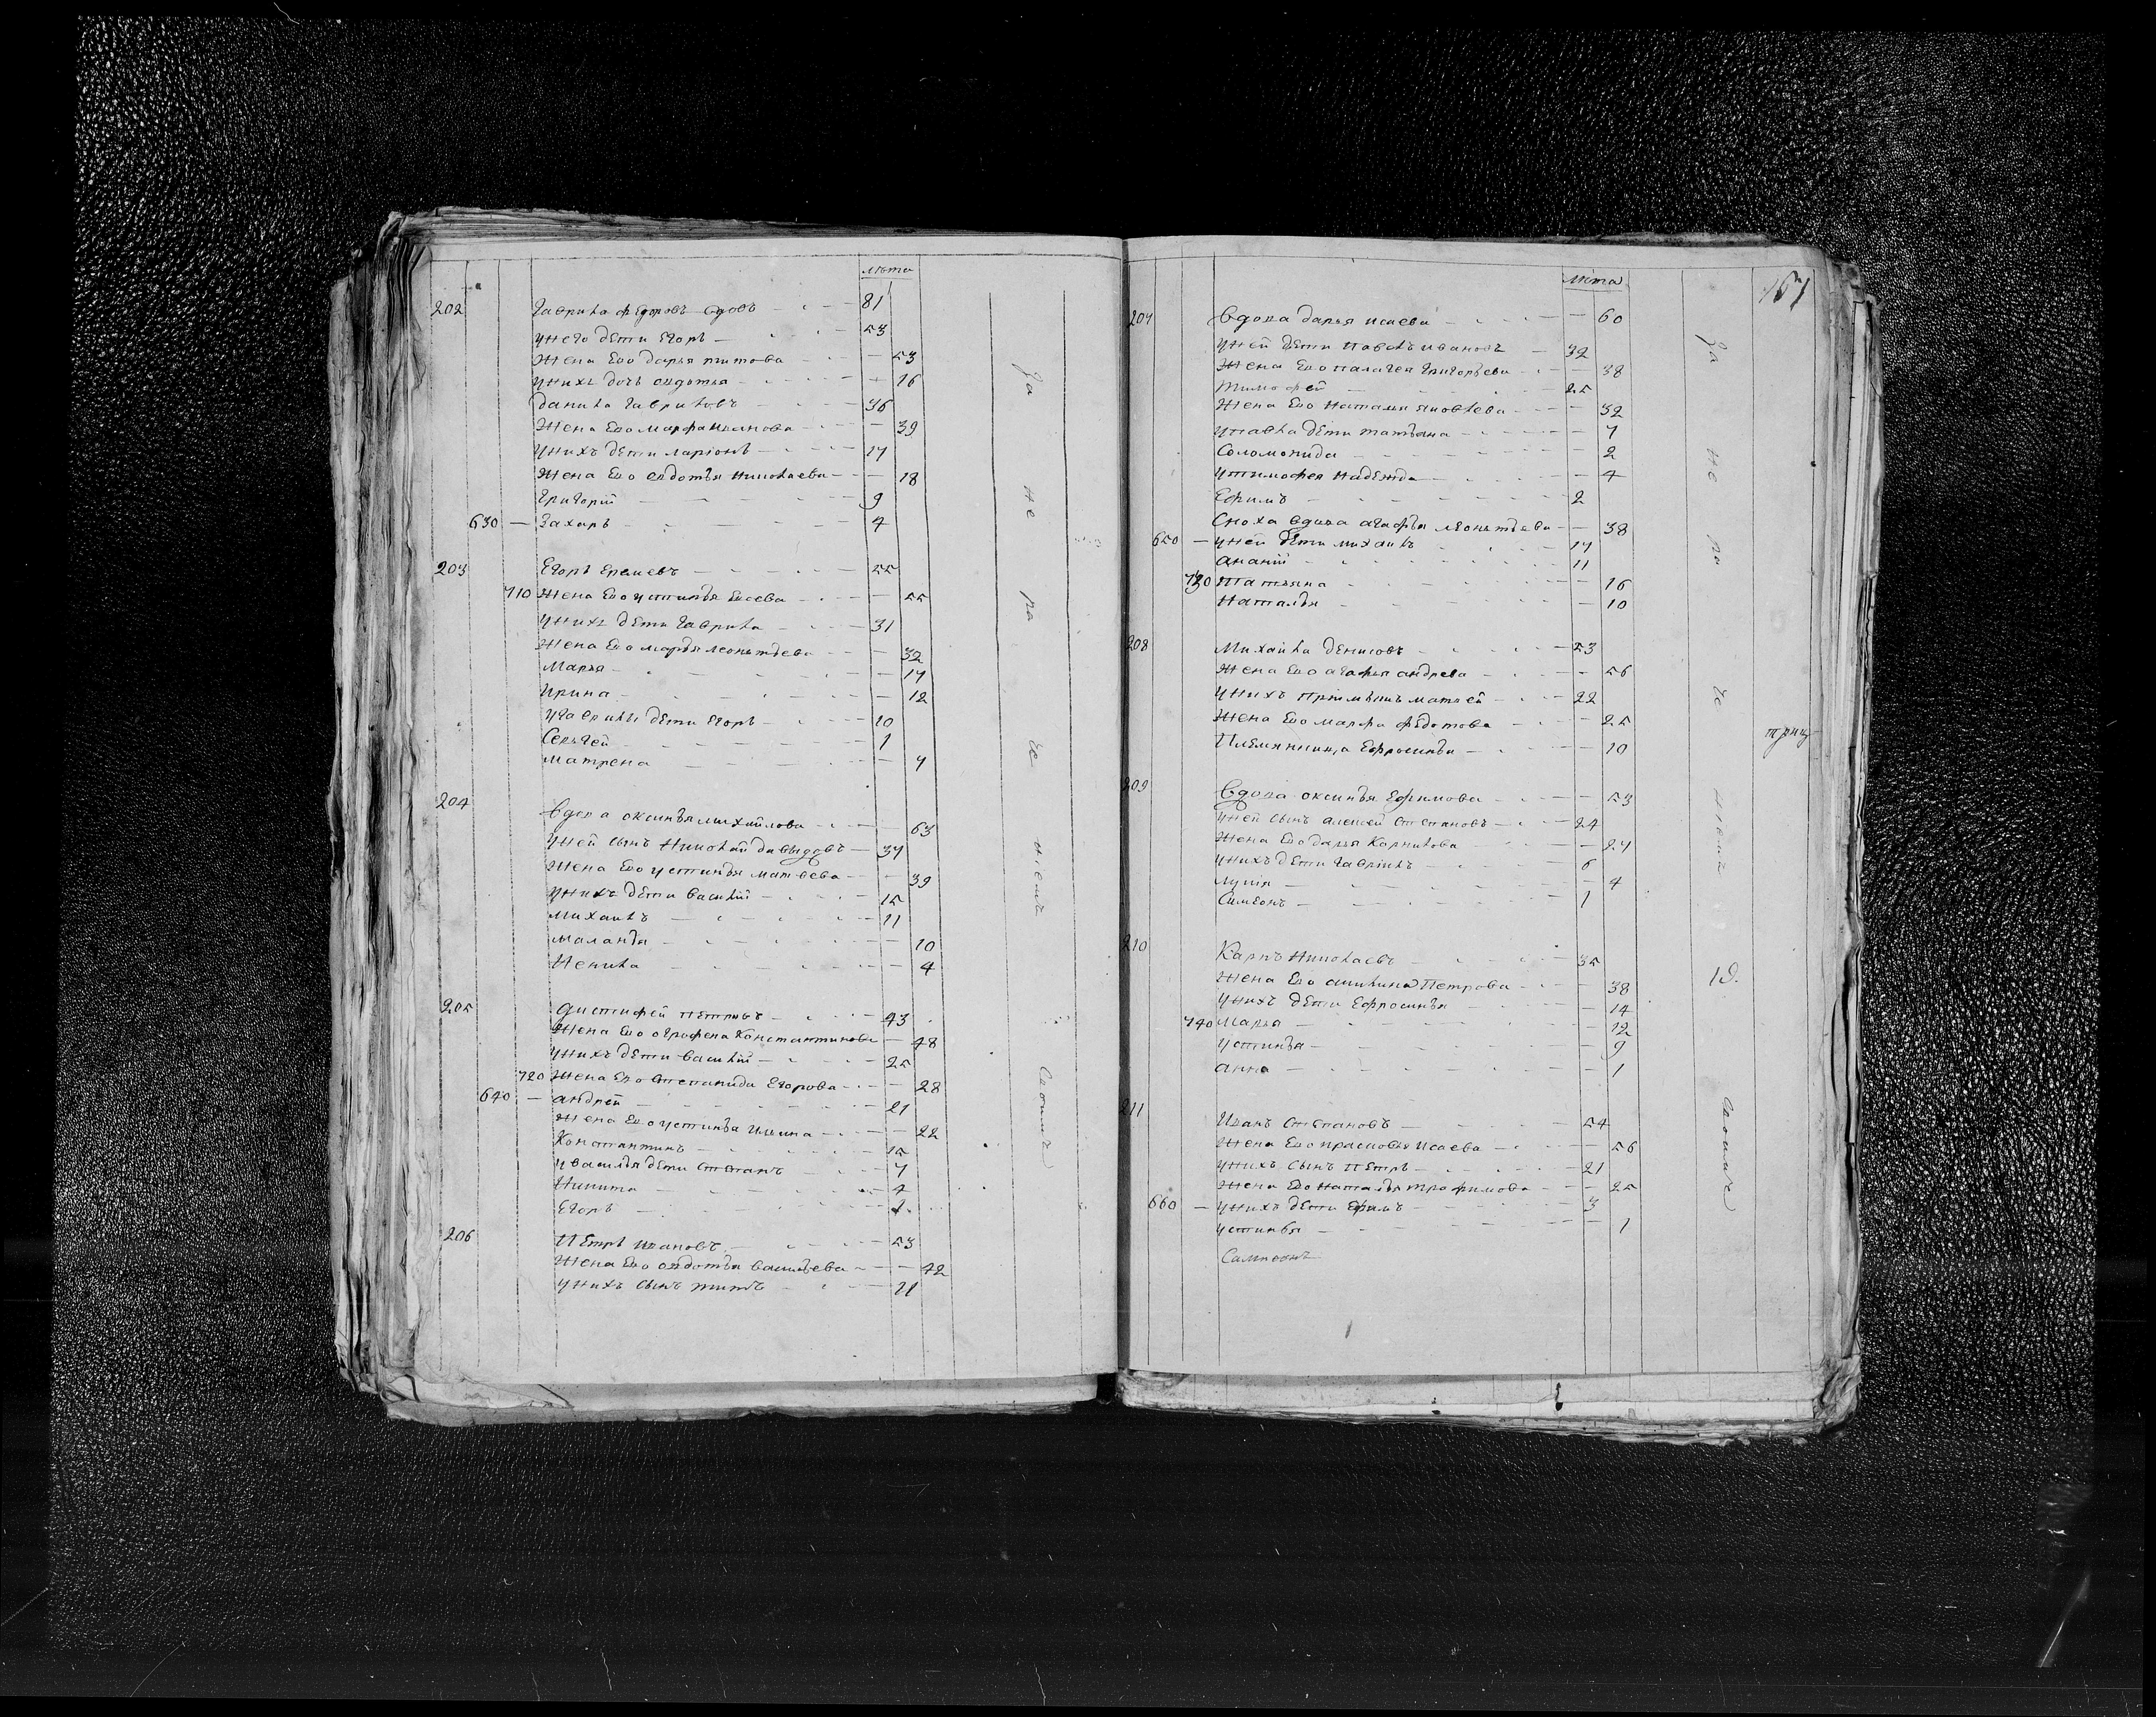 лѣта
202 Гаврила Федоровъ вдовъ 81
у него дѣти Егоръ 53
Жена Ево дарья титова 53
у нихъ дочь евдотья 16
данила Гавриловъ 36
Жена Ево марфа иванова 39
у нихъ дѣти ларіонъ 17
Жена Ево евдотья николаева 18
Григорій 9
630 Захаръ 4
203 Егоръ Еремеевъ 55
710 Жена Ево устинья Евсева 55
у нихъ дѣти Гаврила 31
Жена Ево марья леонтьева 32
Марья 14
Ирина 12
у Гаврилы дѣти Егоръ 10
Сергей 1
матрена 4
204 вдова оксинья михайлова 63
у ней сынъ Николай давыдовъ 37
Жена Ево устинья матвева 39
у нихъ дѣти василій 15
михаилъ 11
маланья 10
Ненила 4
205 Петровъ 43
Жена Ево ографена Константинова 48
у нихъ дѣти василій 25
720 Жена Ево Степанида Егорова 28
640 андрей 21
Жена Ево устинья 22
Константинъ 15
у василья дѣти Степанъ 7
Никита 4
Егоръ
206 Петръ ивановъ 53
Жена Ево евдотья васильева 42
у нихъ сынъ титъ 11
За не ра че ніемъ Своимъ
167
лѣта
207 вдова дарья исаева 60
у ней дѣти павелъ ивановъ 32
Жена Ево палагея Григорьева 38
тимофей 25
Жена Ево наталья яковлева 32
у павла дѣти татьяна 7
Соломонида 2
у тимофея надежда 4
Ефимъ 2
Сноха вдова агафья леонтьева 38
650 у ней дѣти михаилъ 17
ананій 11
730 татьяна 16
наталья 10
208 Михайла денисовъ 53
Жена Ево агафья андрева 56
у нихъ пріімышъ матвей 22
Жена Ево марфа федотова 25
Племянница Ефросинья 10
209 вдова оксинья Ефимова 53
у ней сынъ алексей степановъ 24
Жена Ево дарья Корнилова 24
у нихъ дѣти гавріилъ 6
лукія 4
Симеонъ 1
210 Карпъ Николаевъ 35
Жена Ево акилина Петрова 38
у нихъ дѣти Ефросинья 14
740 Марья 12
устинья 9
анна 1
211 Иванъ Степановъ 54
Жена Ево прасковья Исаева 56
у нихъ сынъ Петръ 21
Жена Ево наталья трофимова 25
660 у нихъ дѣти Ефимъ 3
устинья 1
Сампсонъ
За не ра че ніемъ Своимъ